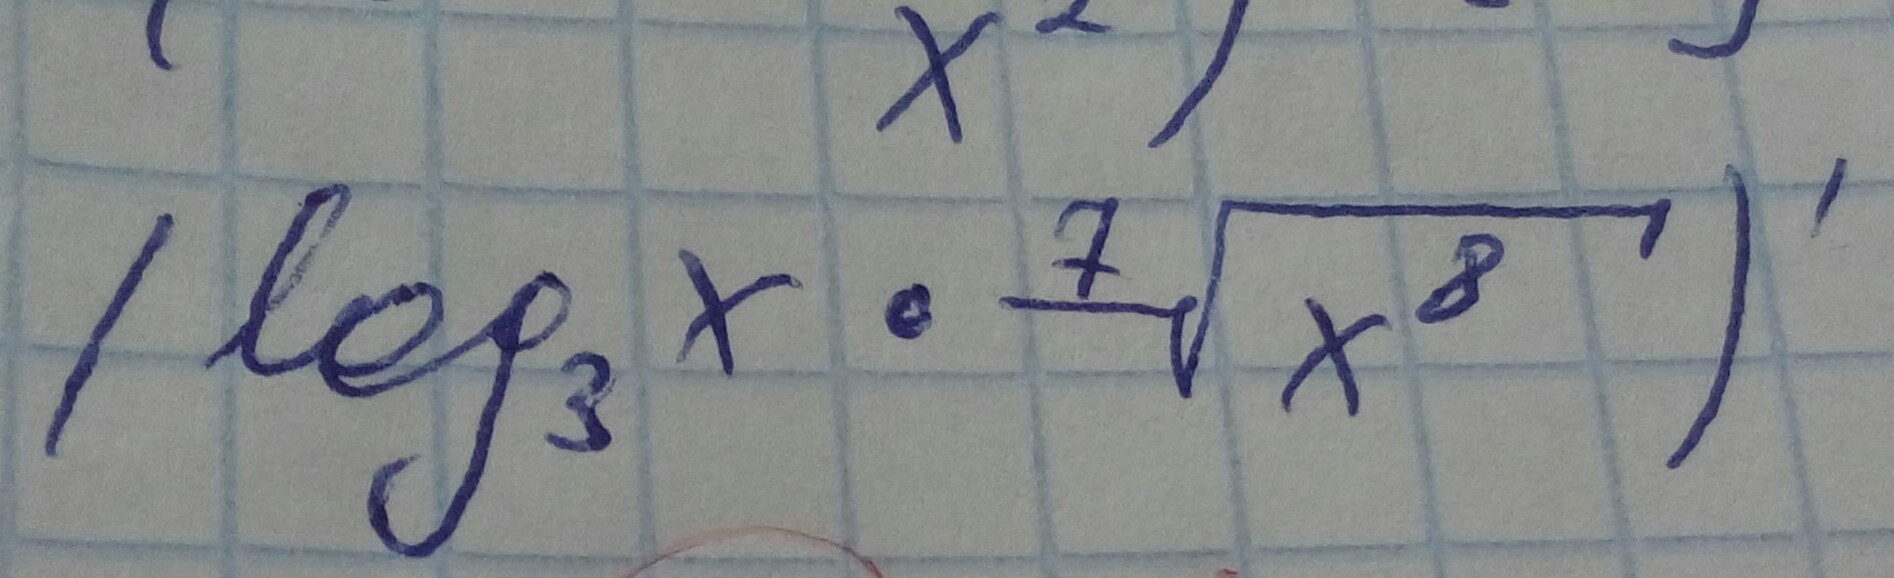 x²)
(log₃ x • ⁷√x⁸)'